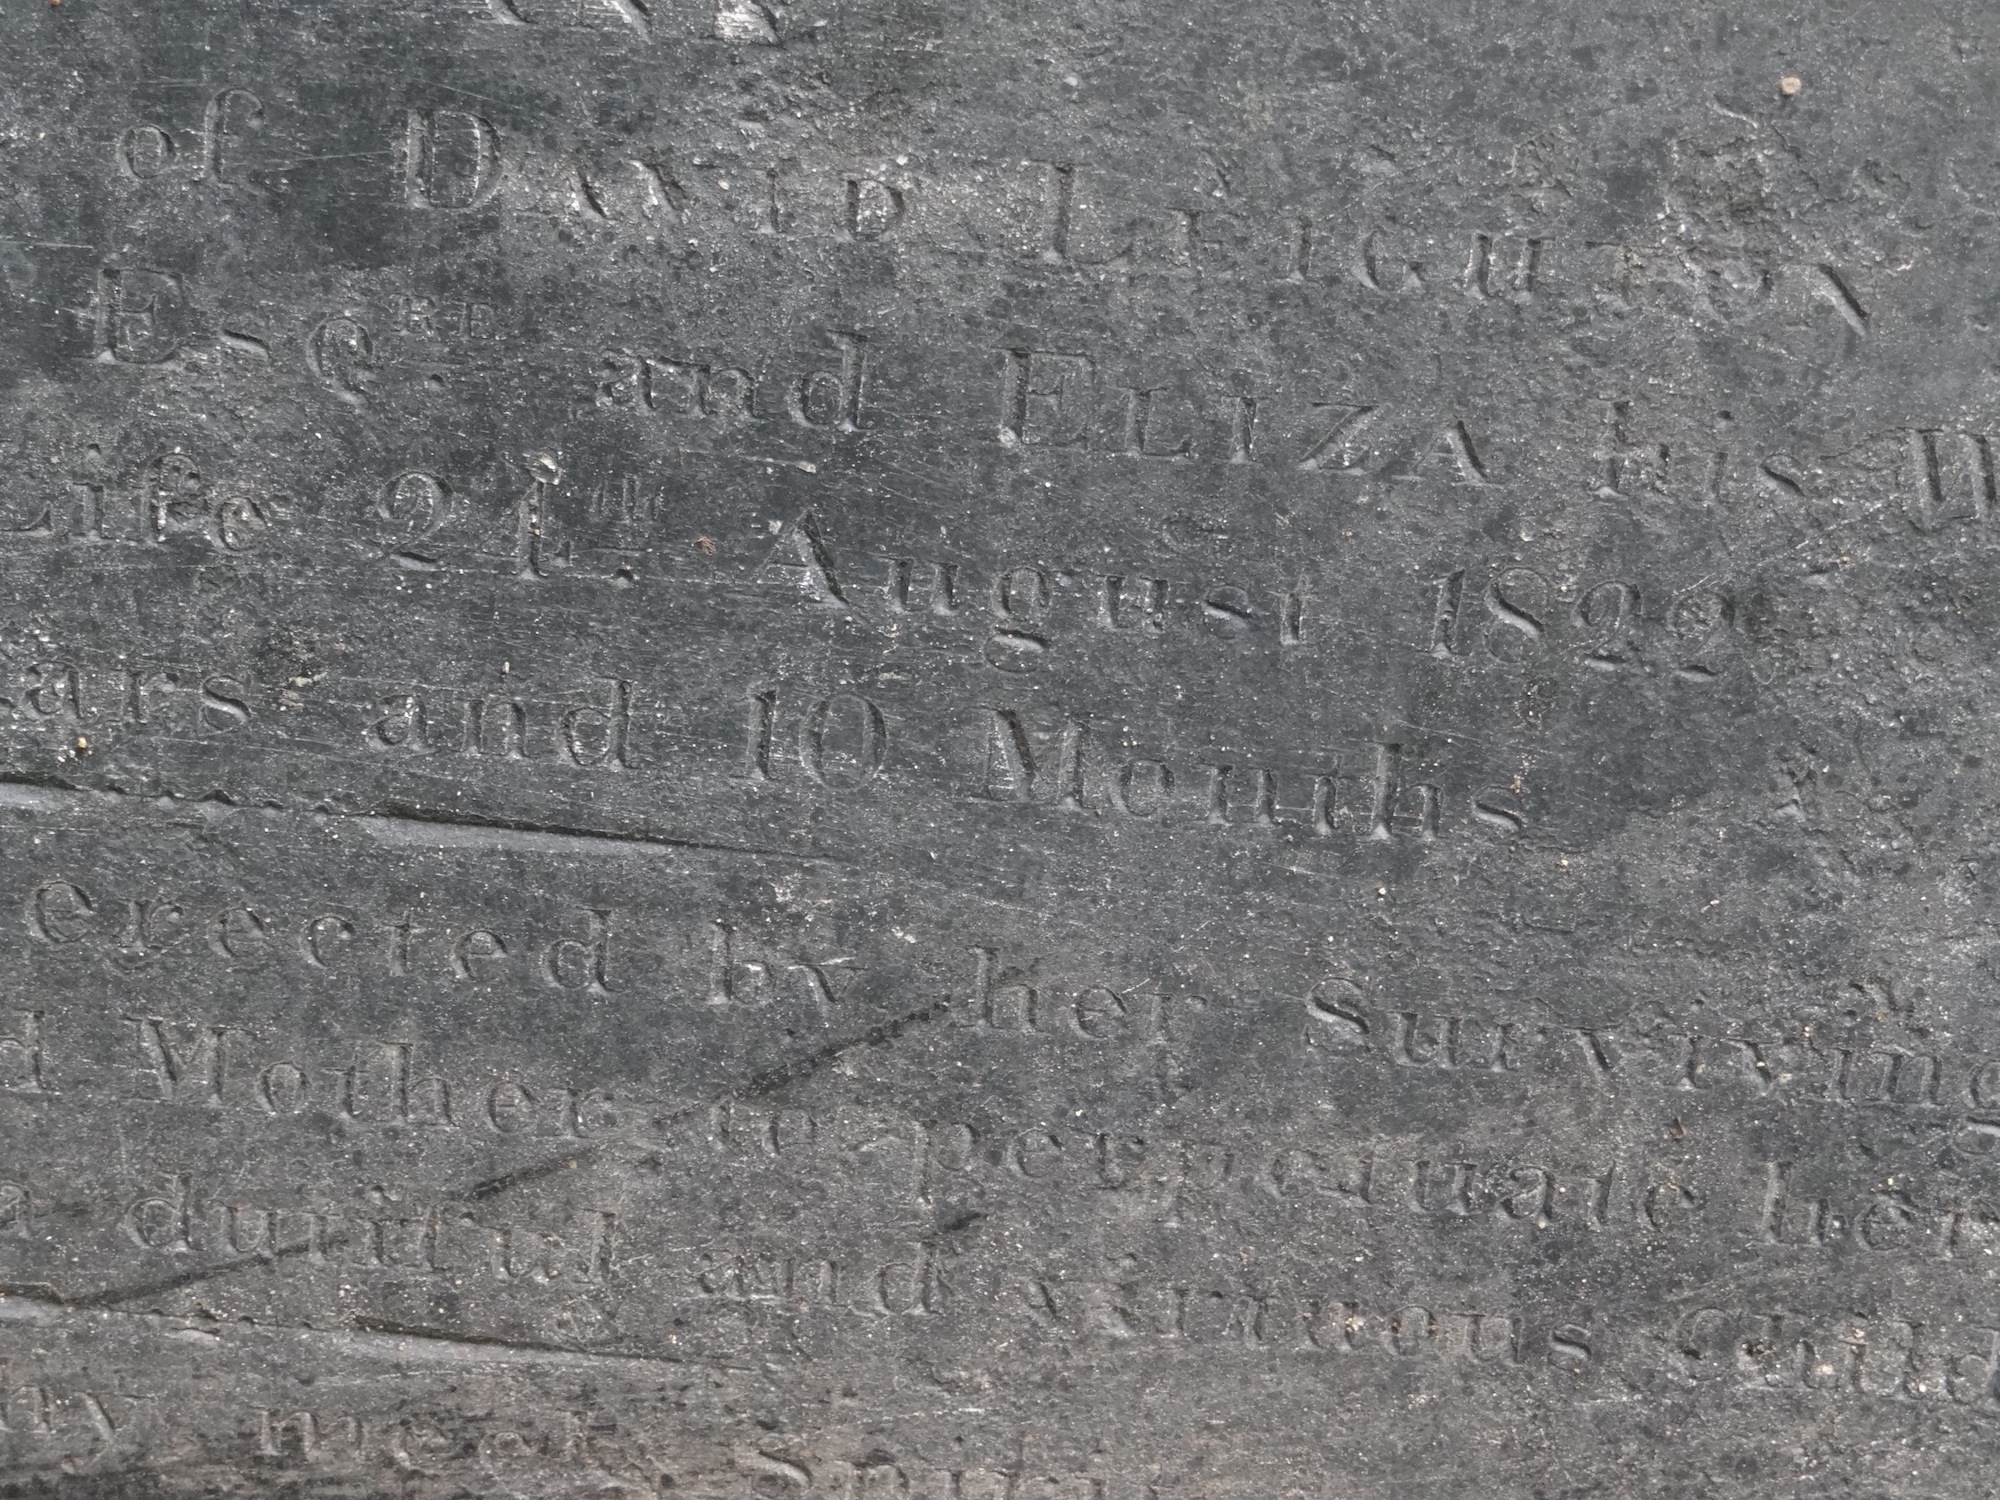 of DAVID LEIGHTON
ESQ.RE and ELIZA his W
Life 24TH August 1822
ars and 10 Months
erected by her Surviving
d Mother to perpetuate her
a dutiful and virtuous Child
hy meek Spirit